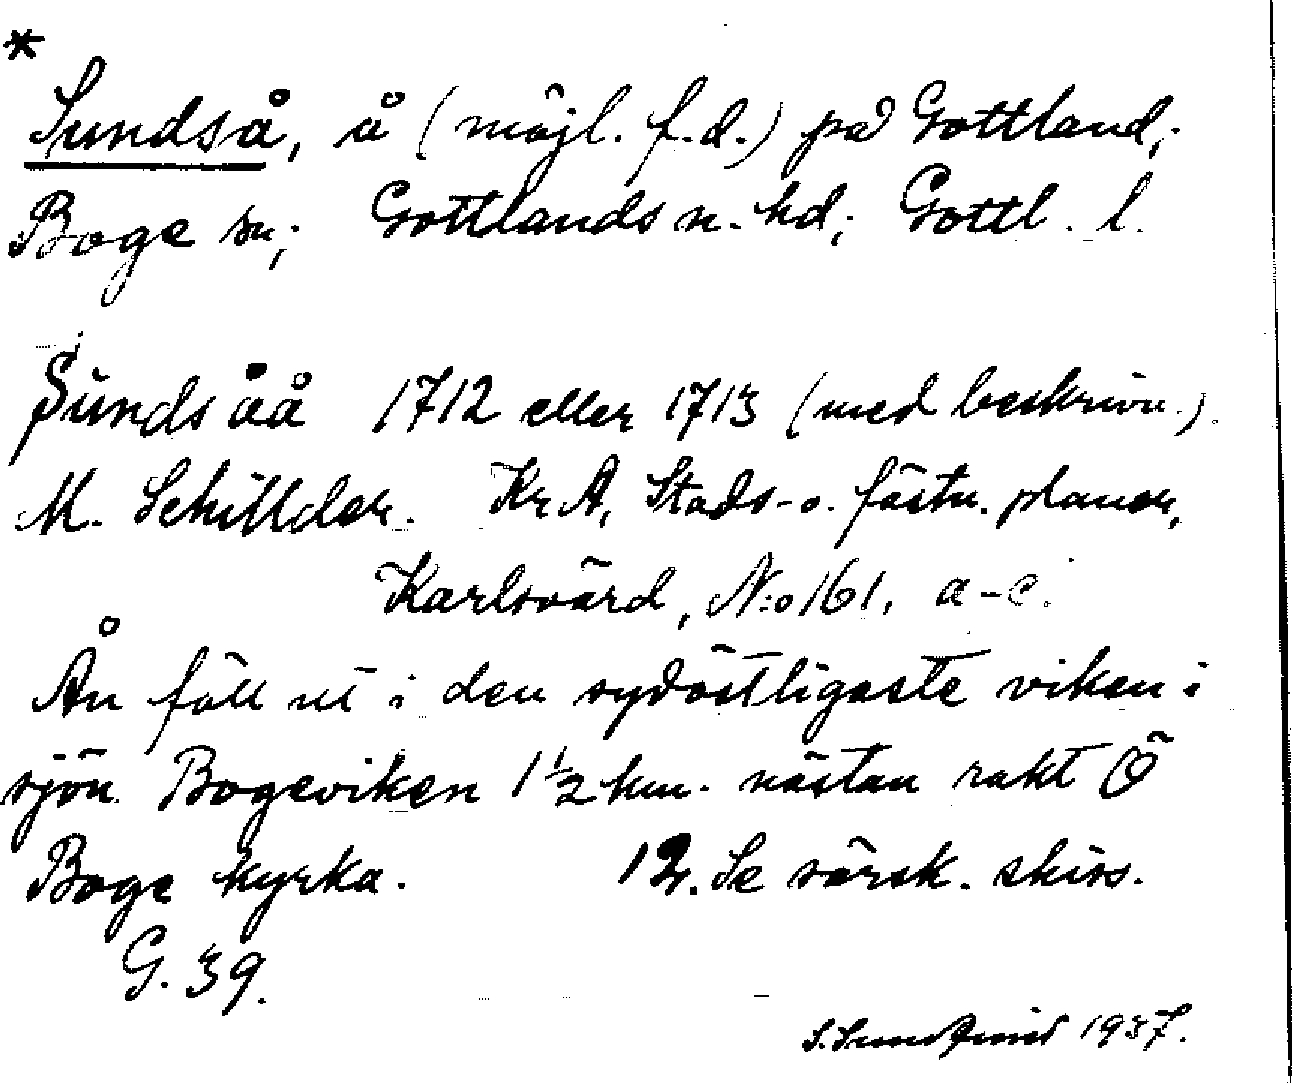 *
Sundså, å (möjl. f.d.) på Gottland;
Boge sn; Gottlands n. hd; Gottl. l.
Sunds åå 1712 eller 1713 (med beskrivn.).
M. Schilder. Kr A, Stads- o. fästn. planer,
Karlsvärd, N:o 161, a-c.
Ån föll ut i den sydöstligaste viken i
sjön Bogeviken 1 1/2 km. nästan rakt Ö
Boge kyrka. 12. Se särsk. skiss.
G. 39.
S. Sundqvist 1937.